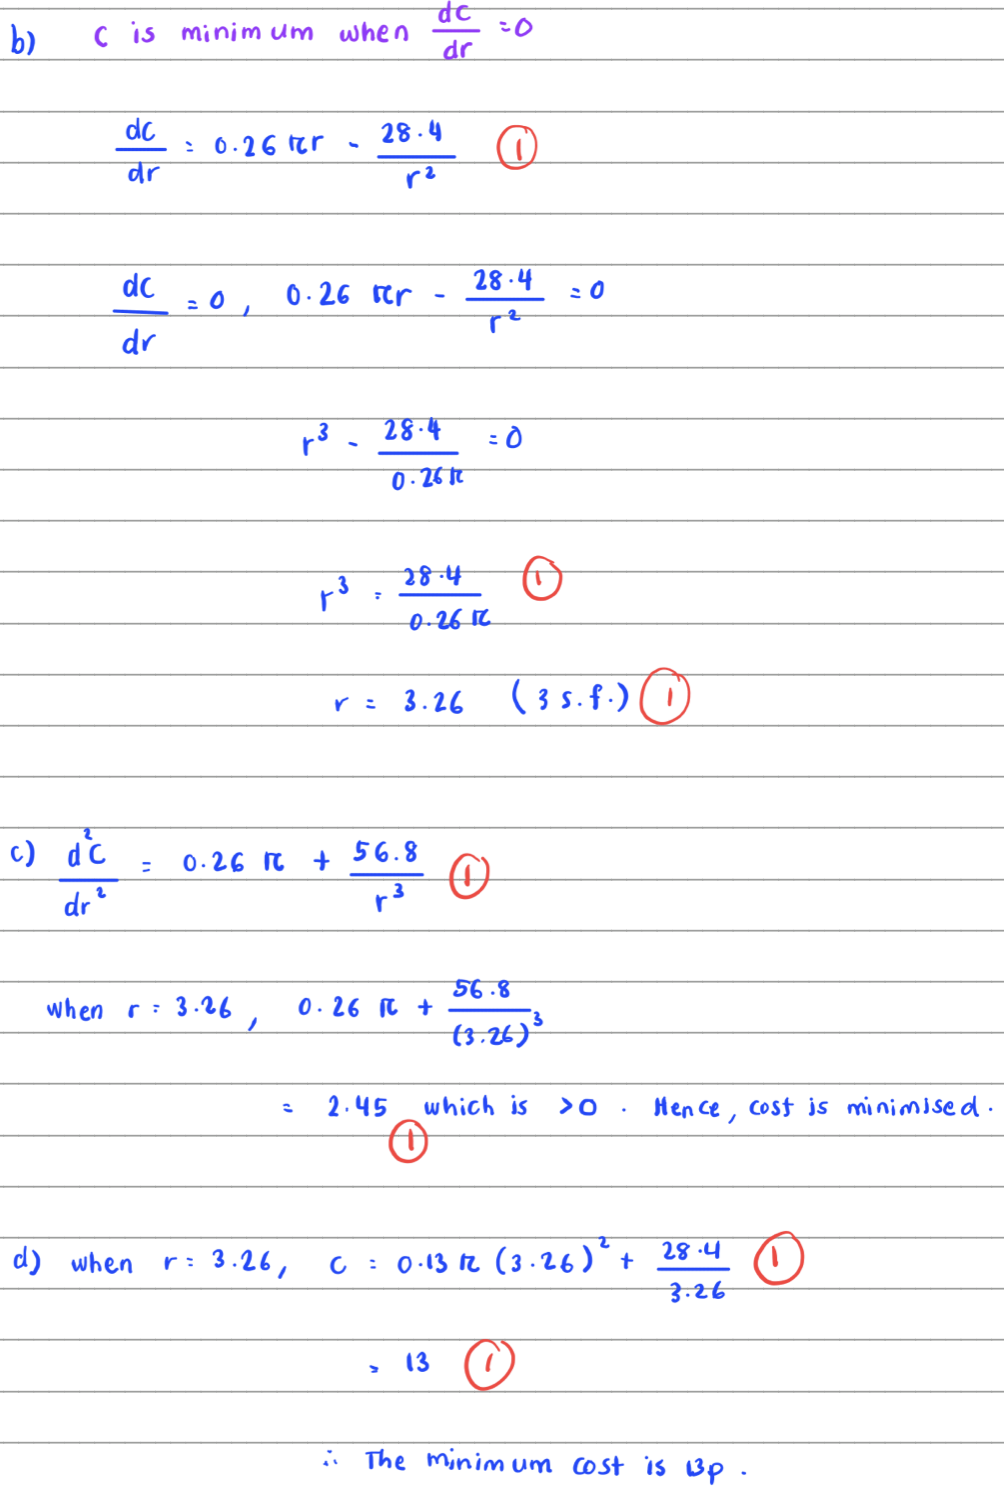 b) C is minimum when dC/dr = 0
dC/dr = 0.26 πr - 28.4/r² ①
dC/dr = 0, 0.26 πr - 28.4/r² = 0
r³ - 28.4/0.26π = 0
r³ = 28.4/0.26π ①
r = 3.26 (3 s.f.) ①
c) d²C/dr² = 0.26 π + 56.8/r³ ①
when r = 3.26, 0.26 π + 56.8/(3.26)³
= 2.45 which is >0. Hence, cost is minimised.
①
d) when r = 3.26, C = 0.13 π (3.26)² + 28.4/3.26 ①
= 13 ①
∴ The minimum cost is 13p.